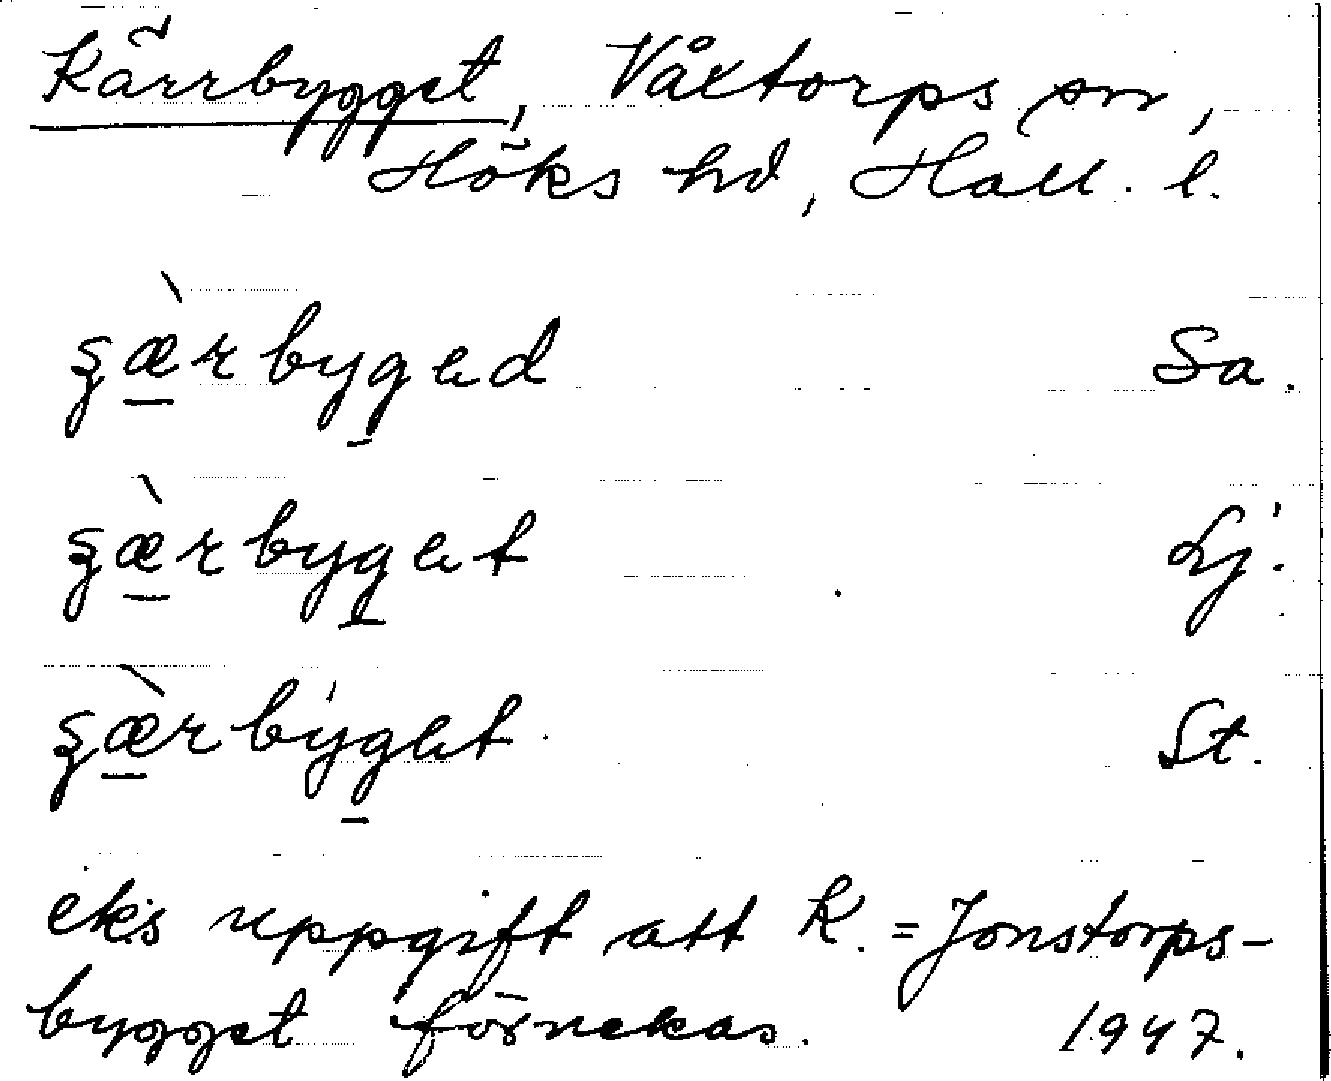 Kärrbygget, Våxtorps sn,
Höks hd, Hall. l.
ʂæ̀rbygəd Sa.
ʂæ̀rbygət Lj.
ʂæ̀rbýgət St.
eks uppgift att K. = Jonstorps-
bygget förnekas. 1947.